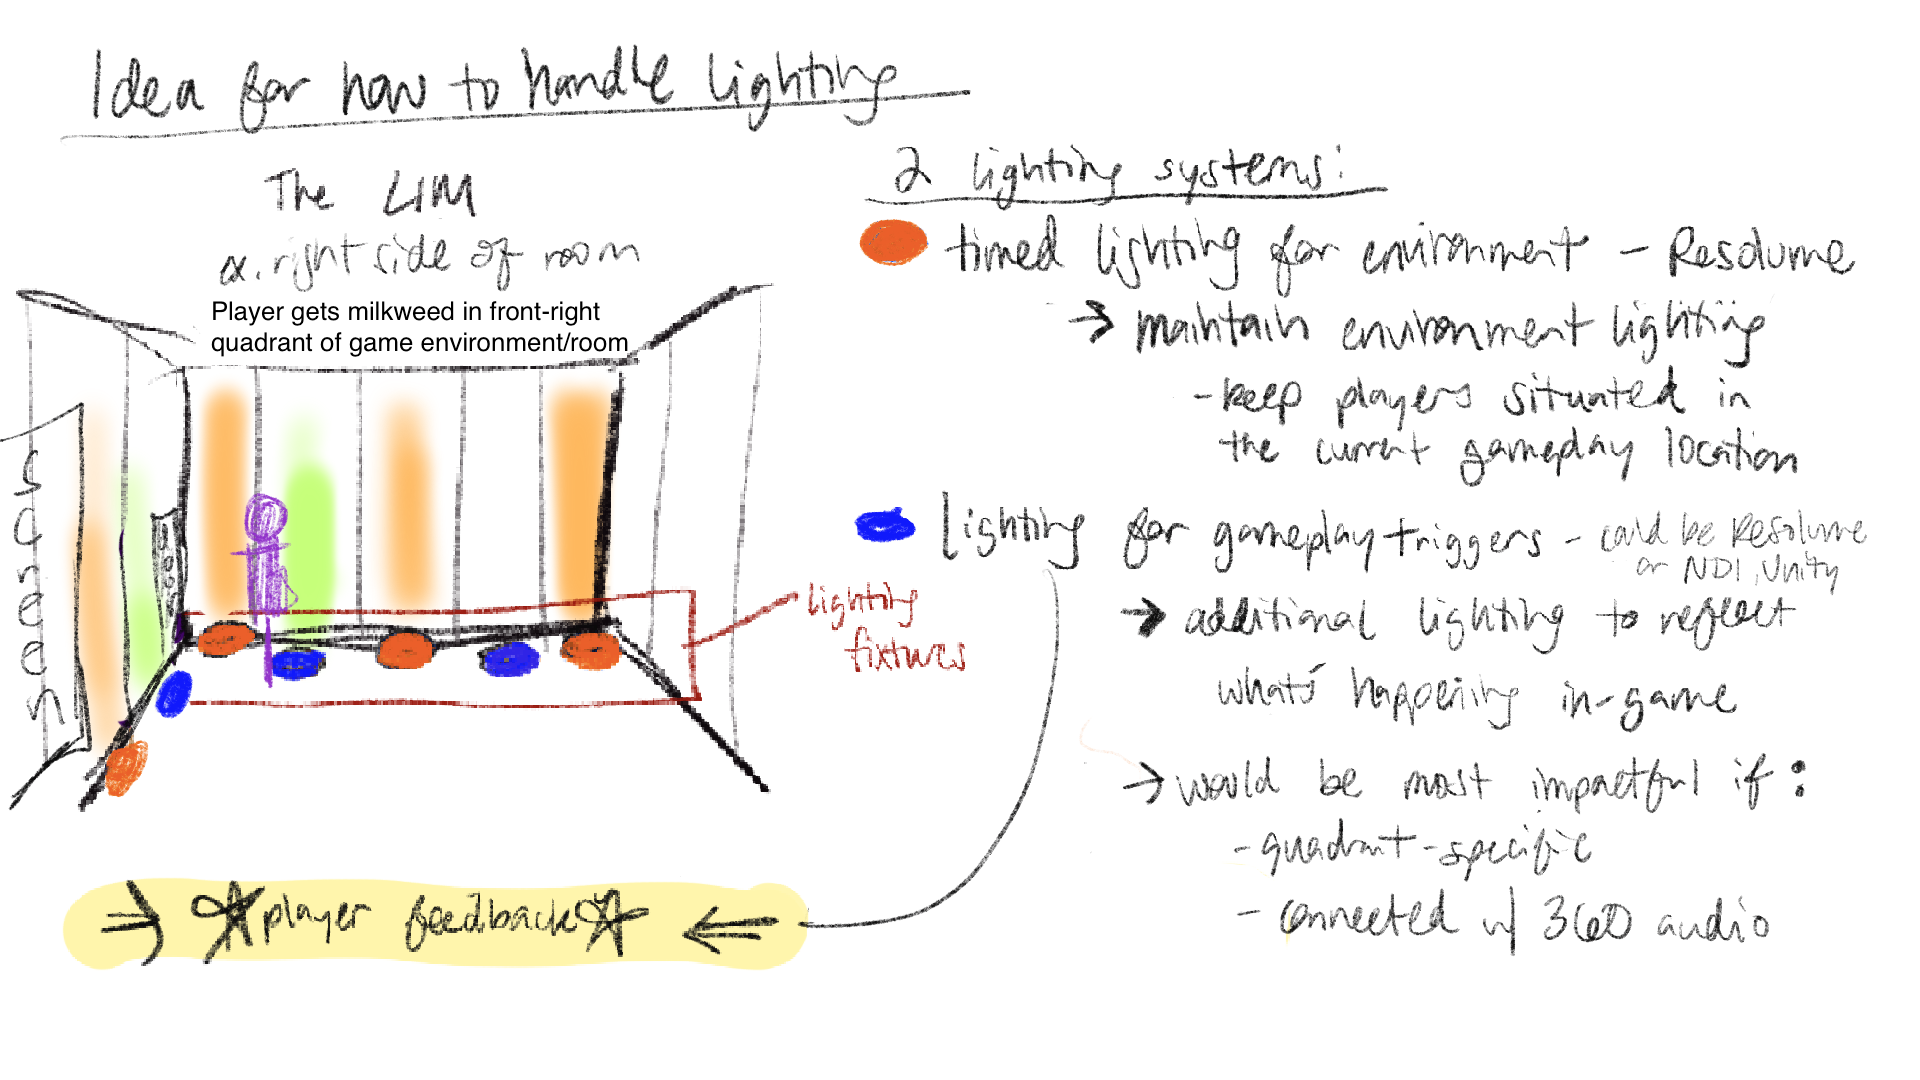 Idea for how to handle lighting
The LIM
ex. right side of room
Player gets milkweed in front-right
quadrant of game environment/room
screen
door
lighting
fixtures
→ player feedback ←
2 lighting systems:
timed lighting for environment - Resolume
→ maintain environment lighting
- keep players situated in
the current gameplay location
Lighting for gameplay triggers - could be Resolume
or NDI, Unity
→ additional lighting to reflect
what's happening in-game
→ would be most impactful if:
- quadrant-specific
- connected w/ 360 audio